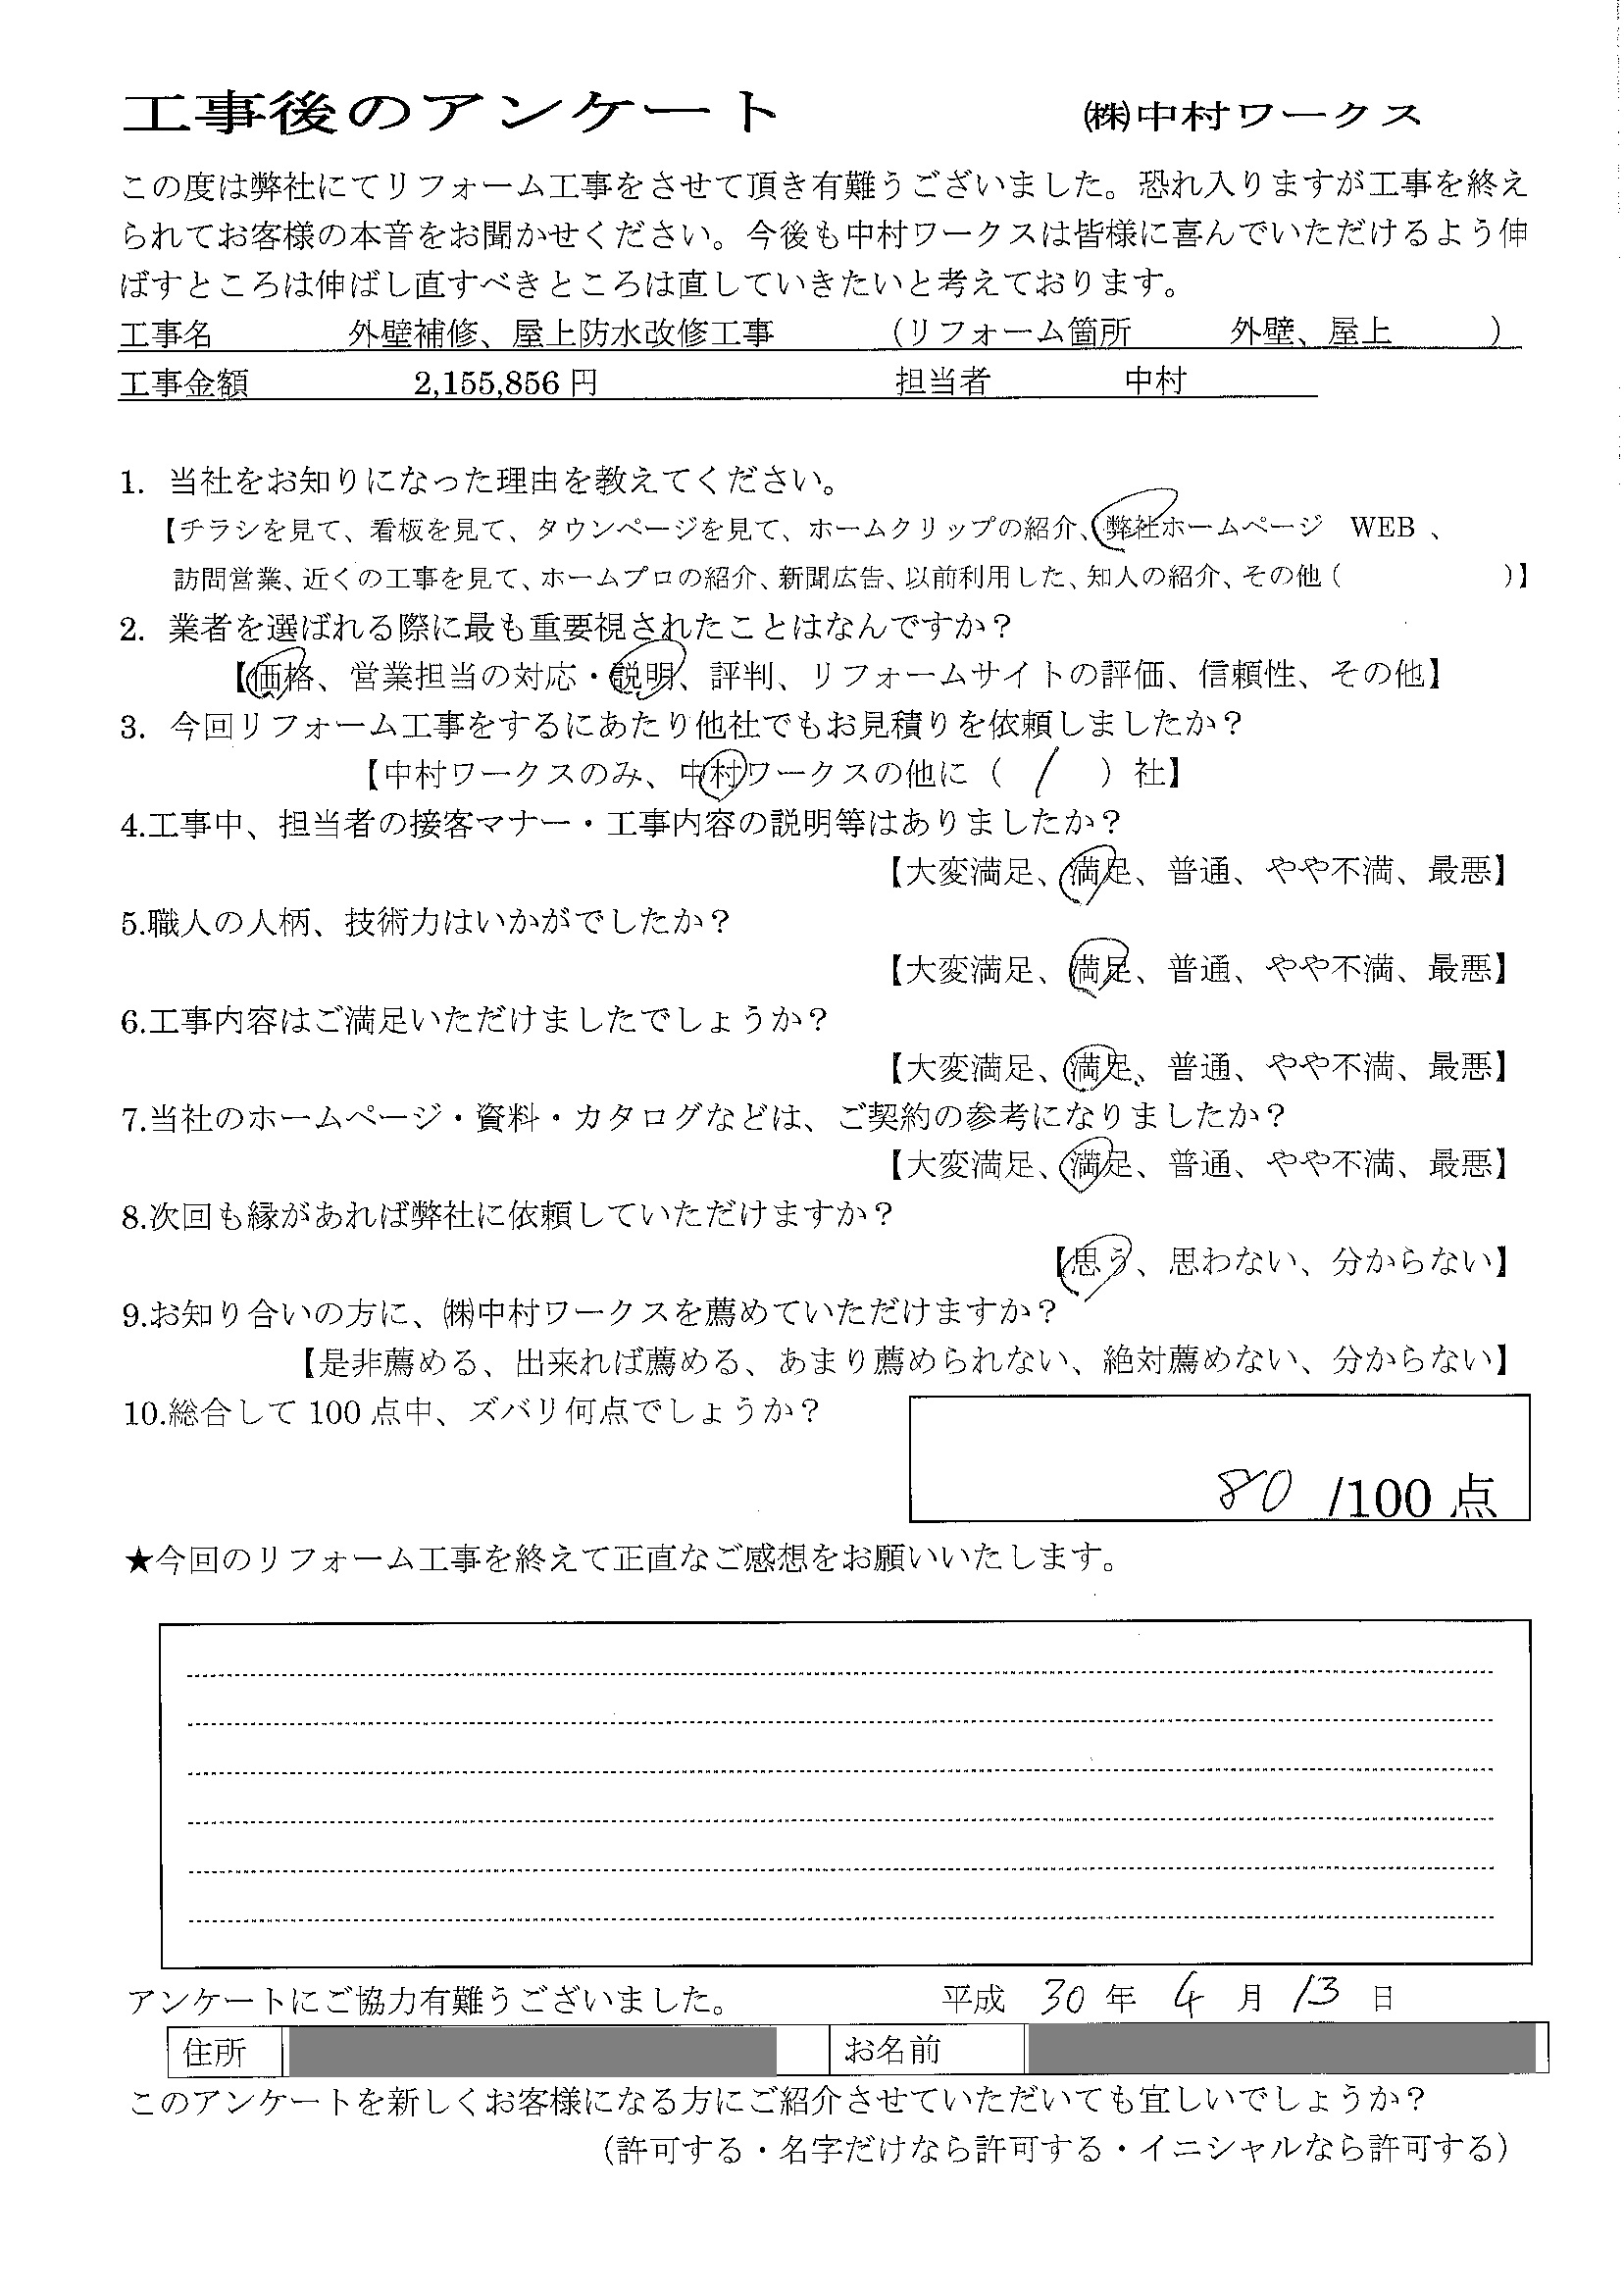 工事後のアンケート ㈱中村ワークス
この度は弊社にてリフォーム工事をさせて頂き有難うございました。恐れ入りますが工事を終え
られてお客様の本音をお聞かせください。今後も中村ワークスは皆様に喜んでいただけるよう伸
ばすところは伸ばし直すべきところは直していきたいと考えております。
工事名 外壁補修、屋上防水改修工事 （リフォーム箇所 外壁、屋上 ）
工事金額 2,155,856 円 担当者 中村
1. 当社をお知りになった理由を教えてください。
【チラシを見て、看板を見て、タウンページを見て、ホームクリップの紹介、弊社ホームページ WEB 、
訪問営業、近くの工事を見て、ホームプロの紹介、新聞広告、以前利用した、知人の紹介、その他（ ）】
2. 業者を選ばれる際に最も重要視されたことはなんですか？
【価格、営業担当の対応・説明、評判、リフォームサイトの評価、信頼性、その他】
3. 今回リフォーム工事をするにあたり他社でもお見積りを依頼しましたか？
【中村ワークスのみ、中村ワークスの他に（ 1 ）社】
4.工事中、担当者の接客マナー・工事内容の説明等はありましたか？
【大変満足、満足、普通、やや不満、最悪】
5.職人の人柄、技術力はいかがでしたか？
【大変満足、満足、普通、やや不満、最悪】
6.工事内容はご満足いただけましたでしょうか？
【大変満足、満足、普通、やや不満、最悪】
7.当社のホームページ・資料・カタログなどは、ご契約の参考になりましたか？
【大変満足、満足、普通、やや不満、最悪】
8.次回も縁があれば弊社に依頼していただけますか？
【思う、思わない、分からない】
9.お知り合いの方に、㈱中村ワークスを薦めていただけますか？
【是非薦める、出来れば薦める、あまり薦められない、絶対薦めない、分からない】
10.総合して 100 点中、ズバリ何点でしょうか？
80 /100 点
★今回のリフォーム工事を終えて正直なご感想をお願いいたします。
アンケートにご協力有難うございました。 平成 30 年 4 月 13 日
住所 お名前
このアンケートを新しくお客様になる方にご紹介させていただいても宜しいでしょうか？
（許可する・名字だけなら許可する・イニシャルなら許可する）